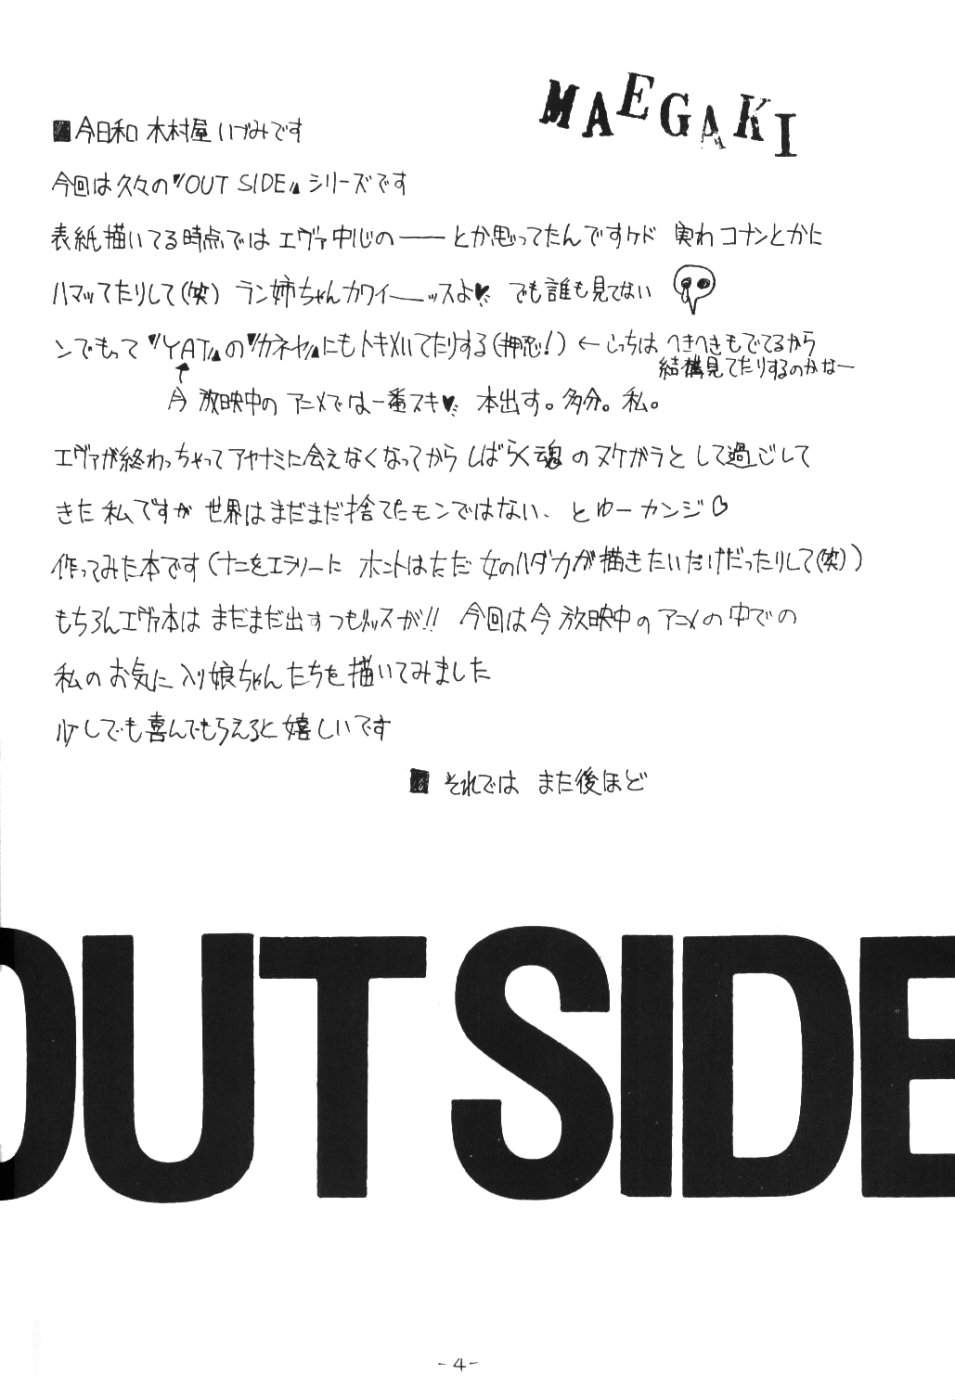 MAEGAKI
■今日和 木村屋いづみです
今回は久々の『OUT SIDE』シリーズです
表紙描いてる時点では エヴァ中心の――とか思ってたんですケド 実わ コナンとかに
ハマッてたりして(笑) ラン姉ちゃんカワイ――ッスよ♥ でも誰も見てない
ンでもって『YAT』の『カネヤ』にもトキメいてたりする(押忍!) ←こっちは へきへきもでてるから
結構見てたりするのかなー
↑
今 放映中の アニメでは一番スキ♥ 本出す。多分。私。
エヴァが終わっちゃって アヤナミに会えなくなってから しばらく魂 の ヌケガラと して過ごして
きた 私ですが 世界は まだまだ捨てたモンではない、 とゆー カンジ♡
作ってみた本です(ナニをエラソーに ホントはただ 女のハダカが描きたいだけだったりして(笑))
もちろんエヴァ本は まだまだ出すつもりッスが!! 今回は今 放映中の アニメの中での
私の お気に入り娘ちゃんたちを描いてみました
少しでも喜んでもらえると嬉しいです
■ それでは また後ほど
OUT SIDE
-4-